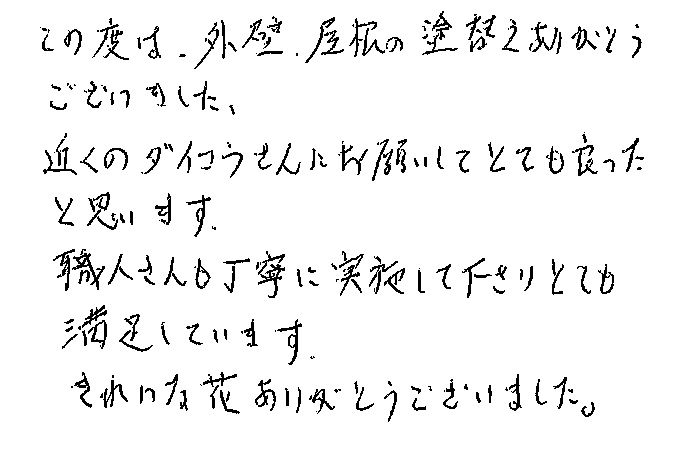 この度は、外壁、屋根の塗替えありがとう
ございました、
近くのダイコウさんにお願いしてとても良った
と思います。
職人さんも丁寧に実施して下さりとても
満足しています。
きれいな花ありがとうございました。